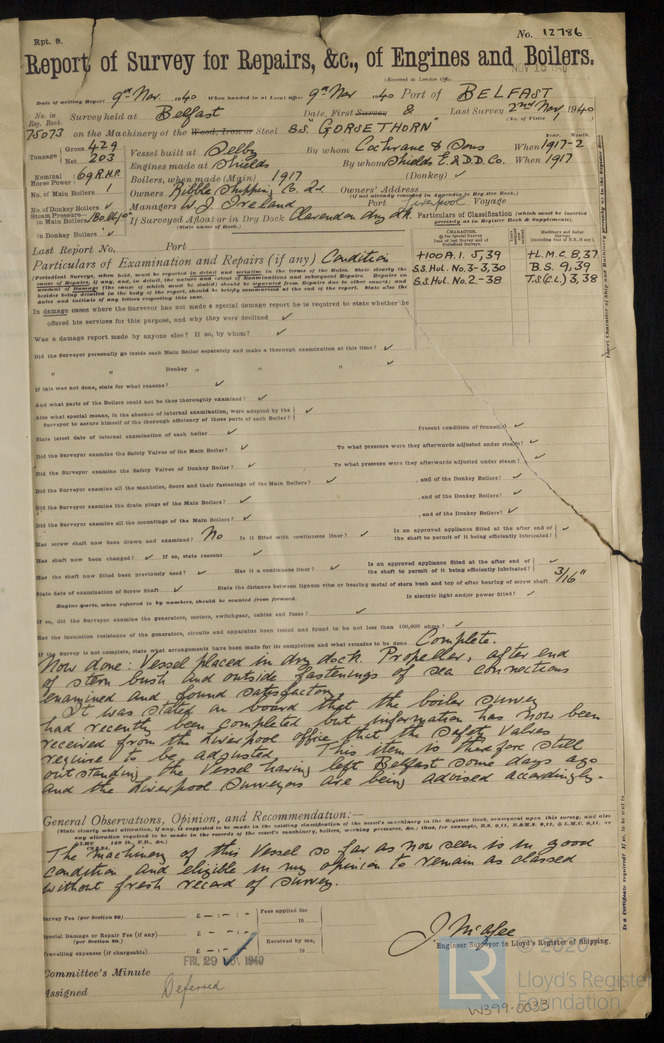 Rpt. 9.
No. 12786
Report of Survey for Repairs, &c., of Engines and Boilers.
(Received at London Office
NOV 13 1940
Date of writing Report 9th Nov. 1940 When handed in at Local Office 9th Nov 1940 Port of BELFAST
No. in Reg. Book. Survey held at Belfast Date, First Survey & Last Survey 2nd Nov 1940
(No. of Visits 1)
75073 on the Machinery of the Wood, Iron or Steel S.S. "GORSETHORN"
Tonnage Gross 429 Net 203 Vessel built at Selby By whom Cochrane & Sons When 1917-2
Year. Month.
Engines made at Shields By whom Shields E. & D.D. Co. When 1917
Nominal Horse Power 69 R.H.P. Boilers, when made (Main) 1917 (Donkey) ✓
No. of Main Boilers 1 Owners Ribble Shipping Co. Ld Owners' Address
(if not already recorded in Appendix to Reg. Book.)
No. of Donkey Boilers ✓ Managers W. J. Ireland Port Liverpool Voyage
Steam Pressure— in Main Boilers If Surveyed Afloat or in Dry Dock Clarendon Dry Dk.
(State name of Dock.)
in Donkey Boilers ✓
Particulars of Classification (which must be inserted precisely as in Register Book & Supplements).
Last Report No. Port
Particulars of Examination and Repairs (if any) Condition
+100A.1. 5,39 +L.M.C. 8,37
S.S. Hul. No.3-3,30 B.S. 9,39
S.S. Hul. No.2-38 T.S.(C.L) 3,38
In damage cases where the Surveyor has not made a special damage report he is required to state whether he
offered his services for this purpose, and why they were declined ✓
Was a damage report made by anyone else? If so, by whom? ✓
Did the Surveyor personally go inside each Main Boiler separately and make a thorough examination at this time? ✓
" " Donkey " " " ✓
If this was not done, state for what reasons? ✓
And what parts of the Boilers could not be thus thoroughly examined? ✓
Also what special means, in the absence of internal examination, were adopted by the
Surveyor to assure himself of the thorough efficiency of those parts of each Boiler? ✓
State latest date of internal examination of each boiler ✓ Present condition of funnel(s) ✓
Did the Surveyor examine the Safety Valves of the Main Boiler? ✓ To what pressure were they afterwards adjusted under steam? ✓
Did the Surveyor examine the Safety Valves of Donkey Boiler? ✓ To what pressure were they afterwards adjusted under steam? ✓
Did the Surveyor examine all the manholes, doors and their fastenings of the Main Boilers? ✓ , and of the Donkey Boilers? ✓
Did the Surveyor examine the drain plugs of the Main Boilers? ✓ , and of the Donkey Boilers? ✓
Did the Surveyor examine all the mountings of the Main Boilers? ✓ , and of the Donkey Boilers? ✓
Has screw shaft now been drawn and examined? No Is it fitted with continuous liner? ✓ Is an approved appliance fitted at the after end of the shaft to permit of it being efficiently lubricated? ✓
Has shaft now been changed? ✓ If so, state reasons ✓
Has the shaft now fitted been previously used? ✓ Has it a continuous liner? ✓ Is an approved appliance fitted at the after end of the shaft to permit of it being efficiently lubricated? ✓
State date of examination of Screw Shaft ✓ State the distance between lignum vitæ or bearing metal of stern bush and top of after bearing of screw shaft 3/16"
Engine parts, when referred to by numbers, should be counted from forward. Is electric light and/or power fitted? ✓
If so, did the Surveyor examine the generators, motors, switchgear, cables and fuses? ✓
Has the insulation resistance of the generators, circuits and apparatus been tested and found to be not less than 100,000 ohms? ✓
If the Survey is not complete, state what arrangements have been made for its completion and what remains to be done Complete.
Now done: Vessel placed in dry dock. Propeller, after end
of stern bush and outside fastenings of sea connections
examined and found satisfactory.
It was stated on board that the boiler survey
had recently been completed but information has now been
received from the Liverpool office that the Safety Valves
require to be adjusted. This item is therefore still
outstanding the Vessel having left Belfast some days ago
and the Liverpool Surveyors are being advised accordingly.
General Observations, Opinion, and Recommendation:—
The machinery of this Vessel so far as now seen is in good
condition and eligible in my opinion to remain as classed
without fresh record of survey.
Survey Fee (per Section 29) £ - : - : - Fees applied for
19
Special Damage or Repair Fee (if any) (per Section 29.) £ - : - : -
Received by me,
Travelling expenses (if chargeable) £ - : - : - 19
J. McAfee
Engineer Surveyor to Lloyd's Register of Shipping.
Committee's Minute FRI. 29 NOV. 1940
Assigned Deferred
© 2020
LR
Lloyd's Register
Foundation
W399-0033